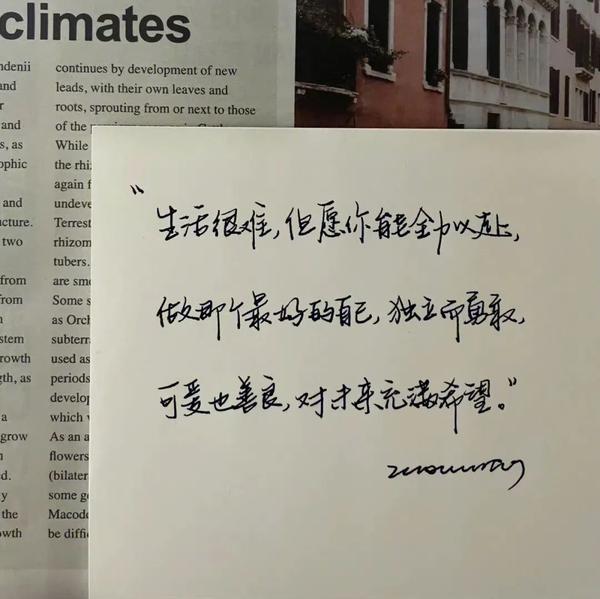 climates
ndenii
and
r
and
s, as
ophic
and
ucture.
two
from
from
n
stem
rowth
gth, as
a
grow
n
d.
y
the
owth
continues by development of new
leads, with their own leaves and
roots, sprouting from or next to those
of the
While
the rhi
again f
undeve
Terrest
rhizom
tubers.
are sm
Some s
as Orch
subterr
used as
periods
develop
which
As an a
flowers
(bilater
some ge
Macode
be diffi
“生活很难,但愿你能全力以赴,
做那个最好的自己,独立而勇敢,
可爱也善良,对未来充满希望。”